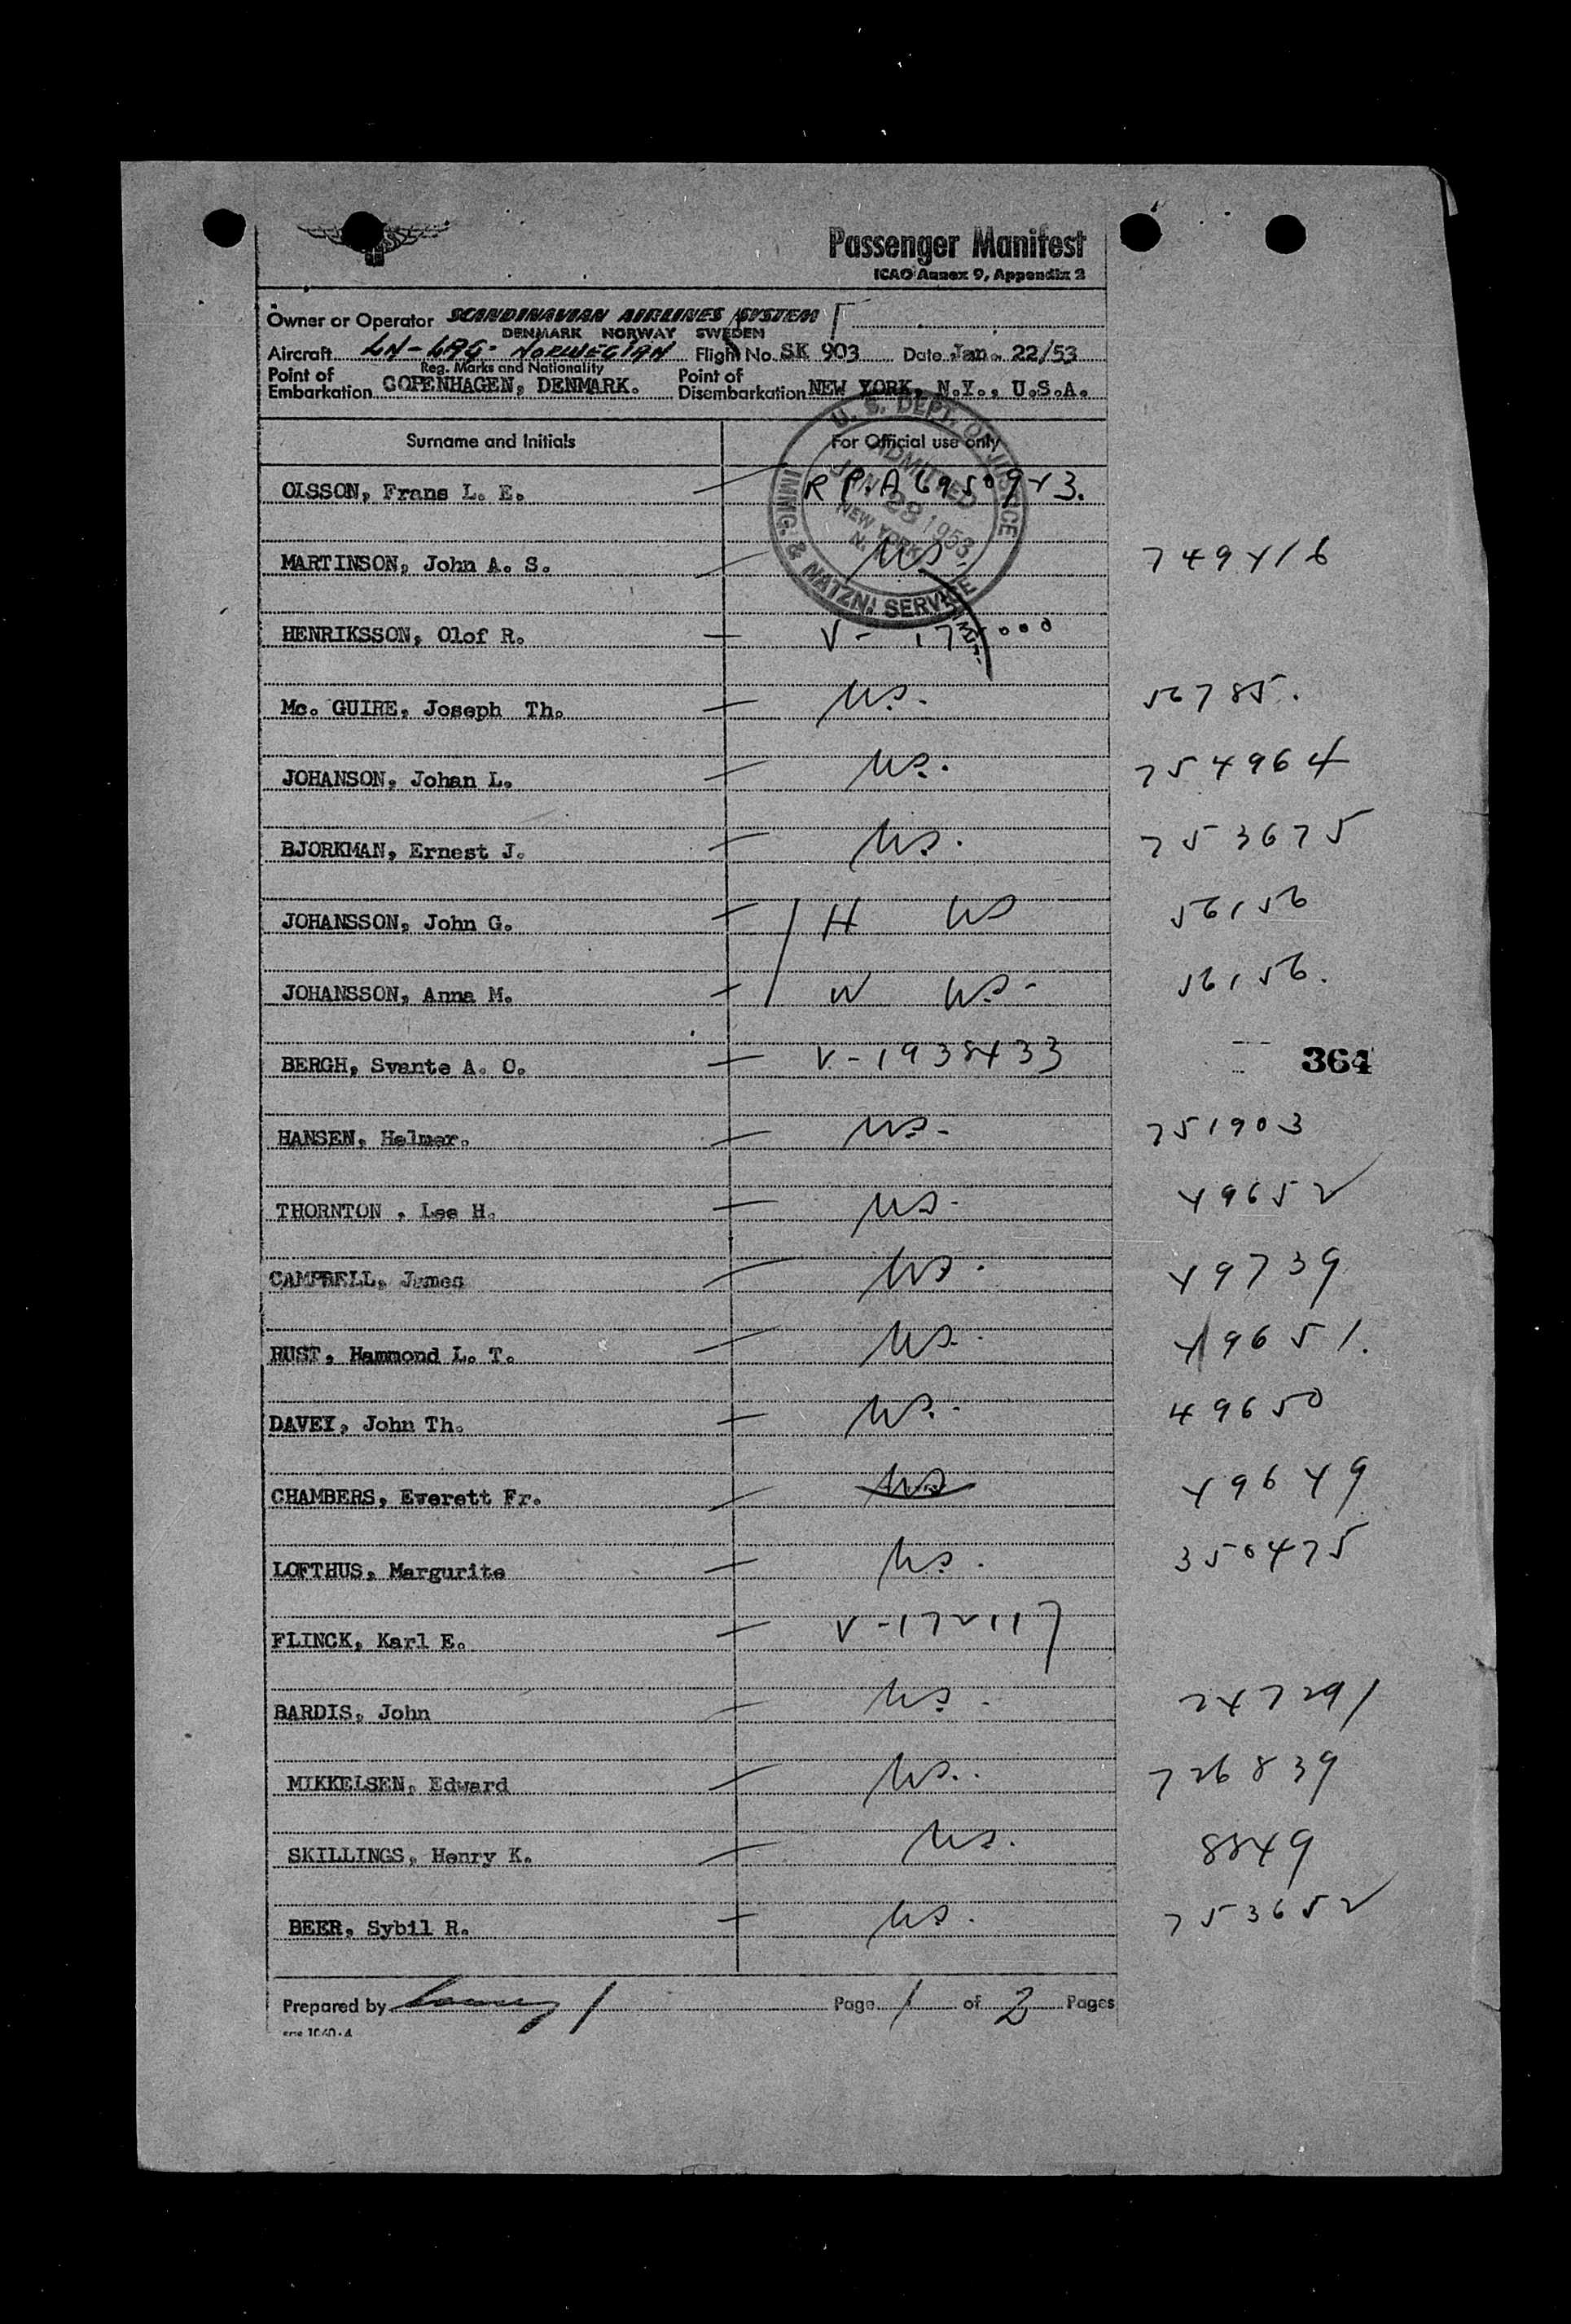 Passenger Manifest
ICAO Annex 9, Appendix 2
Owner or Operator SCANDINAVIAN AIRLINES SYSTEM
DENMARK NORWAY SWEDEN
Aircraft LN-LAG- NORWEGIAN Flight No. SK 903 Date Jan. 22/53
Reg. Marks and Nationality
Point of Embarkation COPENHAGEN, DENMARK. Point of Disembarkation NEW YORK, N.Y., U.S.A.
Surname and Initials For Official use only
U. S. DEPT. OF JUSTICE
ADMITTED
JAN 23 1953
NEW YORK
N. Y.
IMMG. & NATZN. SERVICE
OLSSON, Frans L. E. — R P. A 6950943.
MARTINSON, John A. S. — US. 749416
HENRIKSSON, Olof R. — V-
Mc. GUIRE, Joseph Th. — US. 56785.
JOHANSON, Johan L. — US. 754964
BJORKMAN, Ernest J. — US. 753675
JOHANSSON, John G. — H US 56156
JOHANSSON, Anna M. — W US- 56156.
BERGH, Svante A. O. — V-1938433 364
HANSEN, Helmer. — US- 751903
THORNTON , Lee H. — US- 49652
CAMPBELL, James — US. 49739
RUST, Hammond L. T. — US. 49651.
DAVEY, John Th. — US.- 49650
CHAMBERS, Everett Fr. — US 49649
LOFTHUS, Margurite — US. 350475
FLINCK, Karl E. — V-172117
BARDIS, John — US- 247291
MIKKELSEN, Edward — US.. 726839
SKILLINGS, Henry K. — US. 8849
BEER, Sybil R. — US. 753652
Prepared by Page 1 of 2 Pages
sas 1040-4